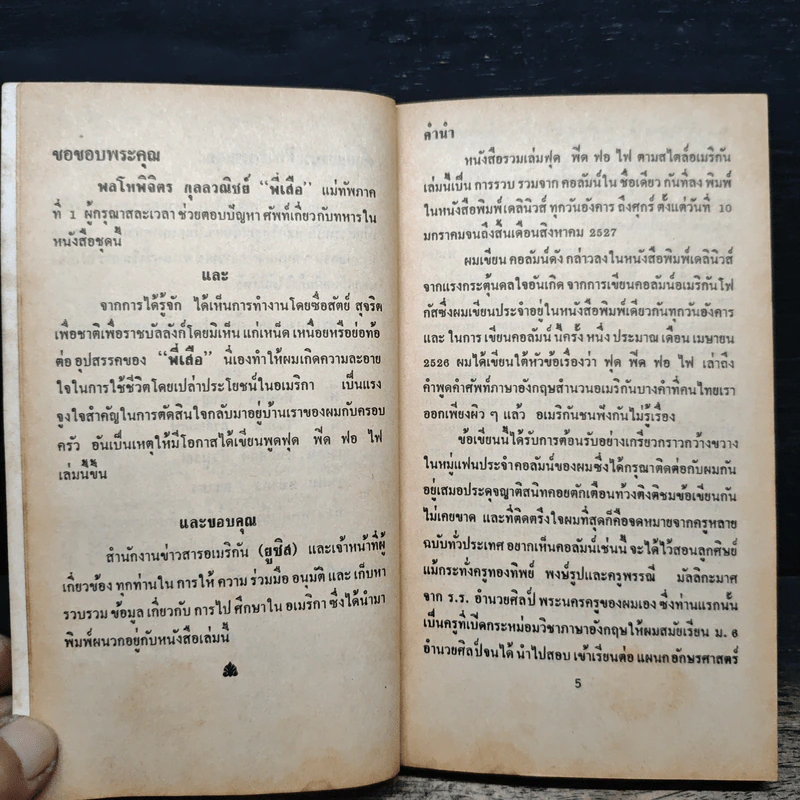 ขอขอบพระคุณ
พลโทพิจิตร กุลลวณิชย์ “พี่เสือ” แม่ทัพภาค
ที่ 1 ผู้กรุณาสละเวลา ช่วยตอบปัญหา ศัพท์เกี่ยวกับทหารใน
หนังสือชุดนี้
และ
จากการได้รู้จัก ได้เห็นการทำงานโดยซื่อสัตย์ สุจริต
เพื่อชาติเพื่อราชบัลลังก์โดยมิเห็น แก่เหน็ด เหนื่อยหรือย่อท้อ
ต่อ อุปสรรคของ “พี่เสือ” นี่เองทำให้ผมเกิดความละอาย
ใจในการใช้ชีวิตโดยเปล่าประโยชน์ในอเมริกา เป็นแรง
จูงใจสำคัญในการตัดสินใจกลับมาอยู่บ้านเราของผมกับครอบ
ครัว อันเป็นเหตุให้มีโอกาสได้เขียนพูดฟุด ฟิด ฟอ ไฟ
เล่มนี้ขึ้น
และขอบคุณ
สำนักงานข่าวสารอเมริกัน (ยูซิส) และเจ้าหน้าที่ผู้
เกี่ยวข้อง ทุกท่านใน การให้ ความ ร่วมมือ อนุมัติ และ เก็บหา
รวบรวม ข้อมูล เกี่ยวกับ การไป ศึกษาใน อเมริกา ซึ่งได้นำมา
พิมพ์ผนวกอยู่กับหนังสือเล่มนี้
คำนำ
หนังสือรวมเล่มฟุด ฟิด ฟอ ไฟ ตามสไตล์อเมริกัน
เล่มนี้เป็น การรวบ รวมจาก คอลัมน์ใน ชื่อเดียว กันที่ลง พิมพ์
ในหนังสือพิมพ์เดลินิวส์ ทุกวันอังคาร ถึงศุกร์ ตั้งแต่วันที่ 10
มกราคมจนถึงสิ้นเดือนสิงหาคม 2527
ผมเขียน คอลัมน์ดัง กล่าวลงในหนังสือพิมพ์เดลินิวส์
จากแรงกระตุ้นดลใจอันเกิด จากการเขียนคอลัมน์อเมริกันโฟ
กัสซึ่งผมเขียนประจำอยู่ในหนังสือพิมพ์เดียวกันทุกวันอังคาร
และ ใน การ เขียนคอลัมน์ นี้ครั้ง หนึ่ง ประมาณ เดือน เมษายน
2526 ผมได้เขียนใต้หัวข้อเรื่องว่า ฟุด ฟิด ฟอ ไฟ เล่าถึง
คำพูดคำศัพท์ภาษาอังกฤษสำนวนอเมริกันบางคำที่คนไทยเรา
ออกเพี้ยงผิว ๆ แล้ว อเมริกันชนฟังกันไม่รู้เรื่อง
ข้อเขียนนี้ได้รับการต้อนรับอย่างเกรียวกราวกว้างขวาง
ในหมู่แฟนประจำคอลัมน์ของผมซึ่งได้กรุณาติดต่อกับผมกัน
อยู่เสมอประดุจญาติสนิทคอยตักเตือนท้วงติงติชมข้อเขียนกัน
ไม่เคยขาด และที่ติดตรึงใจผมที่สุดก็คือจดหมายจากครูหลาย
ฉบับทั่วประเทศ อยากเห็นคอลัมน์เช่นนี้ จะได้ไว้สอนลูกศิษย์
แม้กระทั่งครูทองทิพย์ พงษ์รูปและครูพรรณี มัลลิกะมาศ
จาก ร.ร. อำนวยศิลป์ พระนครครูของผมเอง ซึ่งท่านแรกนั้น
เป็นครูที่เบิดกระหม่อมวิชาภาษาอังกฤษให้ผมสมัยเรียน ม. 6
อำนวยศิลป์จนได้ นำไปสอบ เข้าเรียนต่อ แผนก อักษรศาสตร์
5